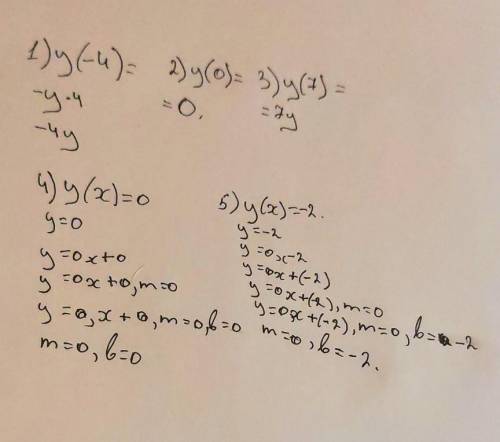 1) y(-4)=
-y·4
-4y
2) y(0)=
=0.
3) y(7)=
=7y
4) y(x)=0
y=0
y=0x+0
y=0x+0, m=0
y=0,x+0, m=0, b=0
m=0, b=0
5) y(x)=-2.
y=-2
y=0x-2
y=0x+(-2)
y=0x+(-2), m=0
y=0x+(-2), m=0, b=-2
m=0, b=-2.